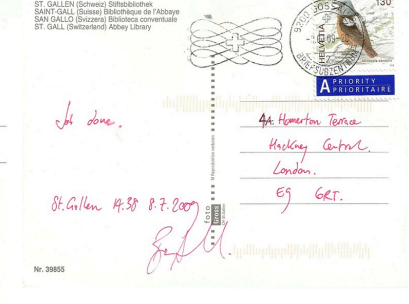 ST. GALLEN (Schweiz) Stiftsbibliothek
SAINT-GALL (Suisse) Bibliothèque de l'Abbaye
SAN GALLO (Svizzera) Biblioteca conventuale
ST. GALL (Switzerland) Abbey Library
130
HELVETIA
A PRIORITY
PRIORITAIRE
Job done.
St. Gallen 14.38 8.7.2009
4A Homerton Terrace
Hackney Central.
London.
E9 6RT.
foto
Gross
Nr. 39855